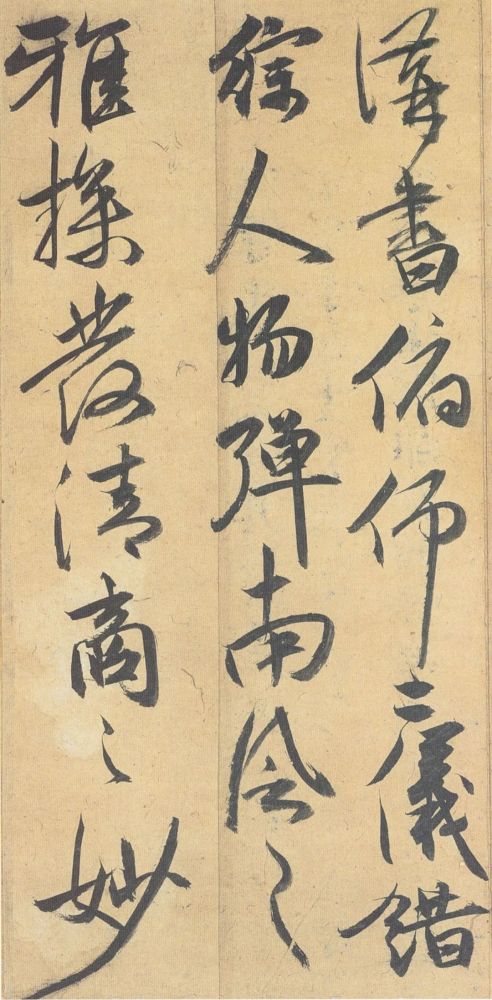 講書俯仰二儀錯
綜人物彈南風之
雅操發清商之妙